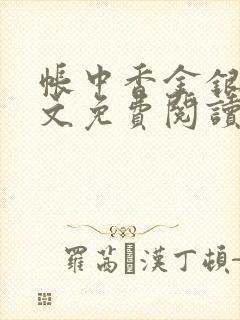 帳中香金銀
文免費閱讀
羅茜·漢丁頓-